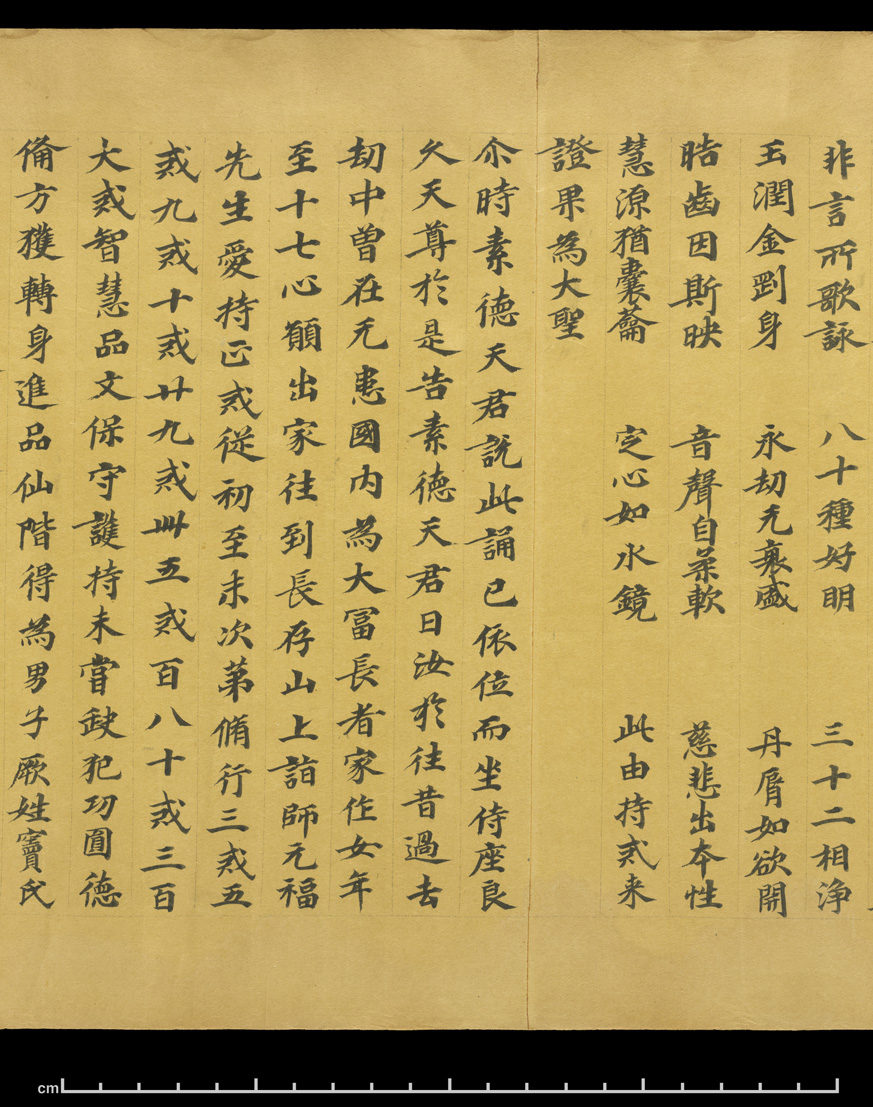 非言所歌詠　八十種好明　三十二相淨
玉潤金剛身　永劫无衰盛　丹脣如欲開
晧齒因斯映　音聲自柔軟　慈悲出夲性
慧源猶橐籥　定心如水鏡　此由持戒来
證果為大聖
尒時素德天君說此誦已依位而坐侍座良
久天尊於是告素德天君曰汝於往昔過去
劫中曾在无恚國内為大冨長者家作女年
至十七心願出家往到長存山上詣師元福
先生愛持正戒從初至末次第脩行三戒五
戒九戒十戒廿九戒卌五戒百八十戒三百
大戒智慧品文保守護持未甞缺犯功圓德
俻方獲轉身進品仙階得為男子厥姓竇氏
cm